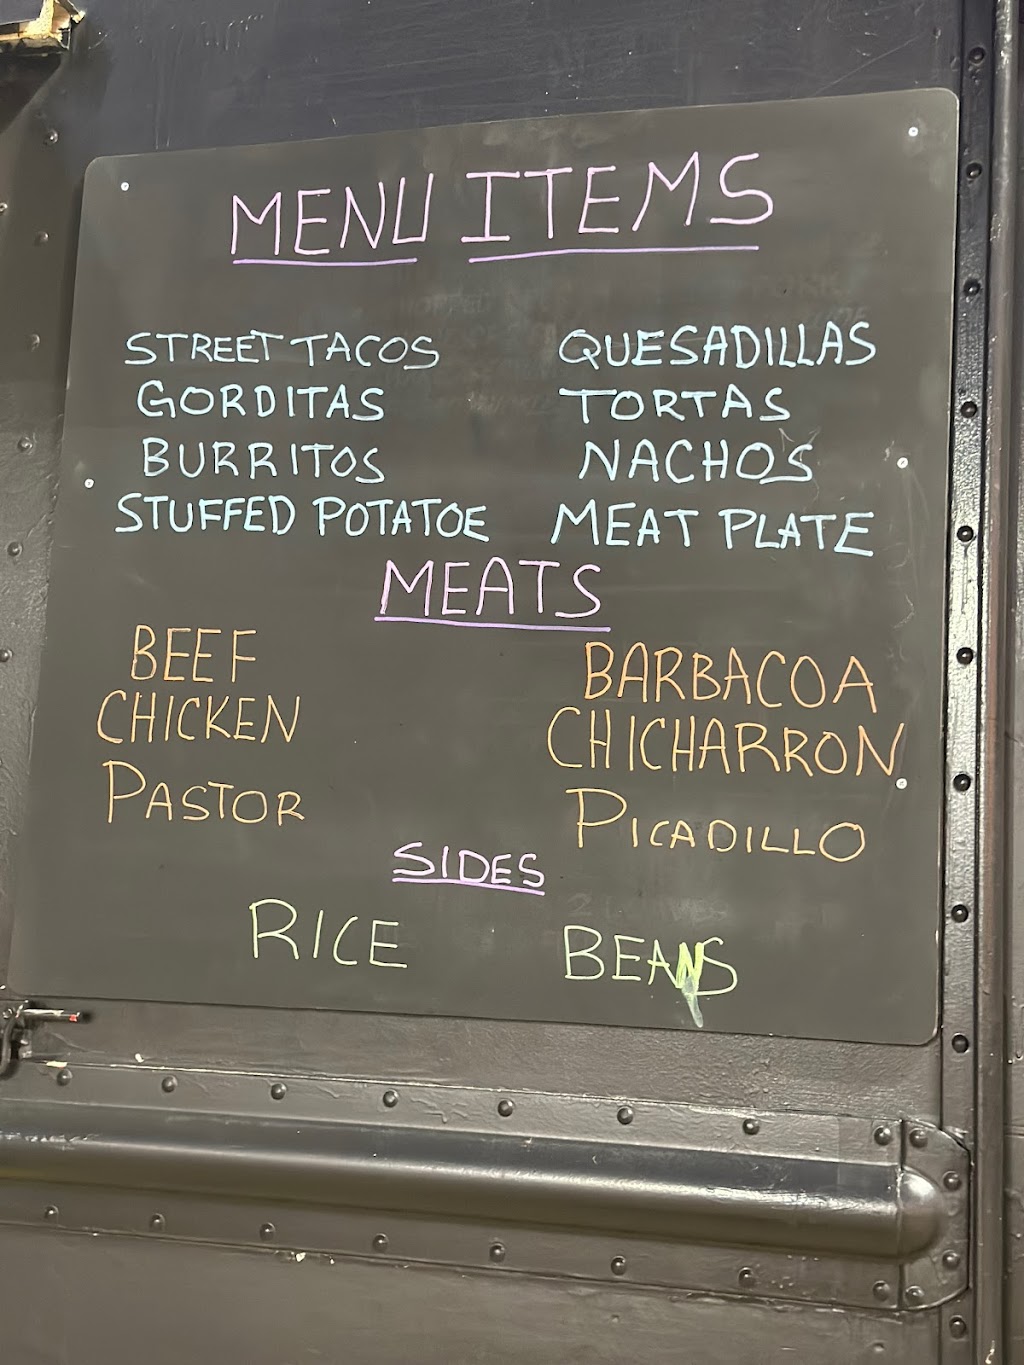 MENU ITEMS
STREET TACOS QUESADILLAS
GORDITAS TORTAS
BURRITOS NACHOS
STUFFED POTATOE MEAT PLATE
MEATS
BEEF BARBACOA
CHICKEN CHICHARRON
PASTOR PICADILLO
SIDES
RICE BEANS